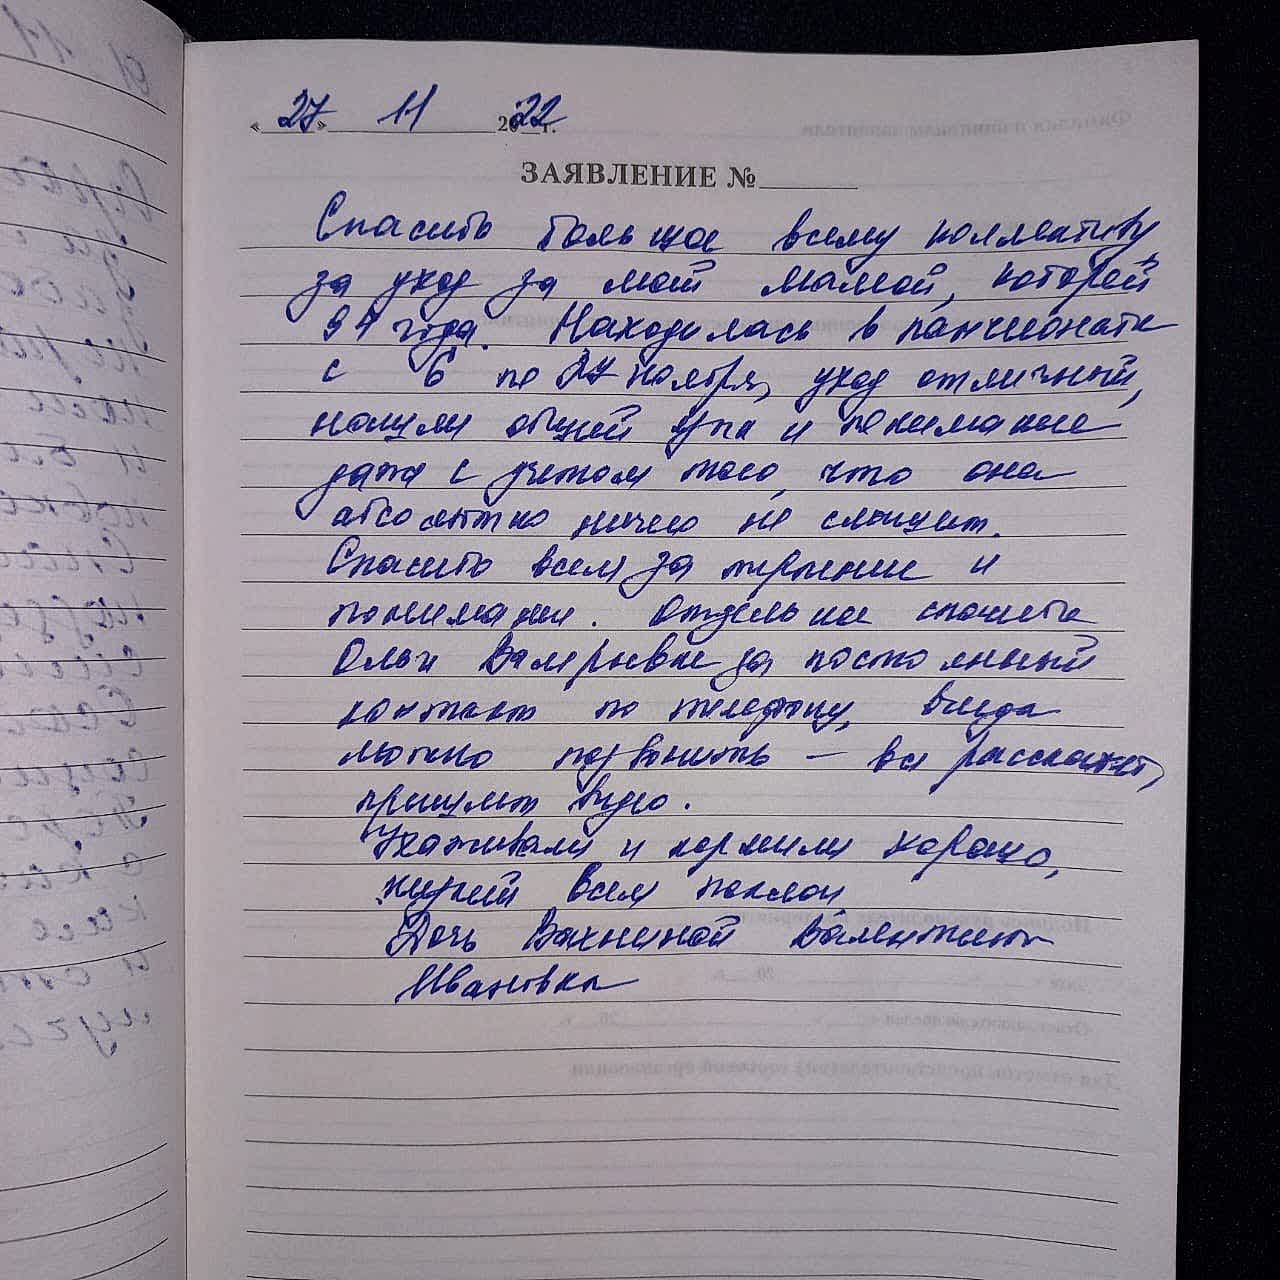 «27» 11 2022 г.
ЗАЯВЛЕНИЕ №
Спасибо большое всему коллективу
за уход за моей мамой, которой
94 года. Находилась в пансионате
с 6 по 27 ноября, уход отличный,
нашли общий язык и понимание
даже с учетом того, что она
абсолютно ничего не слышит.
Спасибо всем за терпение и
понимание. Отдельное спасибо
Ольге Валерьевне за постоянный
контакт по телефону, всегда
можно позвонить – все расскажет,
пришлет видео.
Ухаживали и кормили хорошо,
низкий всем поклон
Дочь Вахниной Валентины
Ивановны